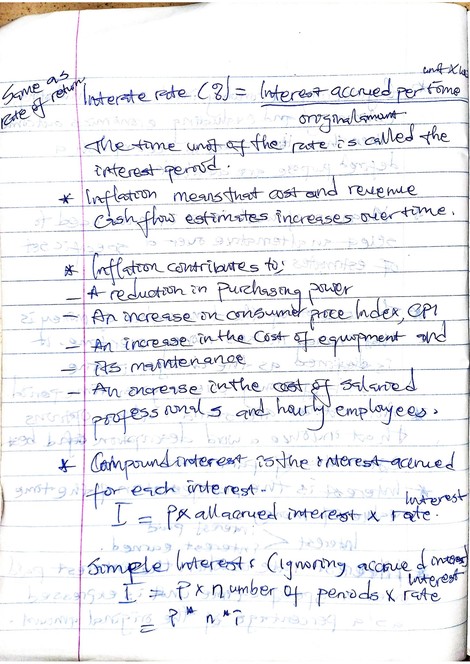 Same as
rate of return
unit x 100
Interate rate (%) = Interest accrued per time
original amount
The time unit of the rate is called the
interest period.
* Inflation means that cost and revenue
cash flow estimates increases over time.
* Inflation contributes to;
- A reduction in purchasing power
- An increase in consumer price Index, CPI
- An increase in the Cost of equipment and
its maintenance
- An increase in the cost of salaried
professionals and hourly employees.
* Compound interest is the interest accrued
for each interest.
I = P x all accrued interest x interest rate.
Simple Interest: (ignoring accrued interest)
I = P x number of periods x interest rate
= P * n * i